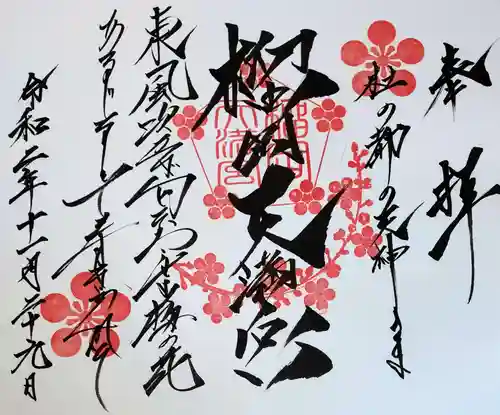 奉拝
杜の都の天神さま
榴岡天満宮
東風吹かば匂ひおこせよ梅の花
あるじなしとて春な忘れそ
令和二年十一月二十九日